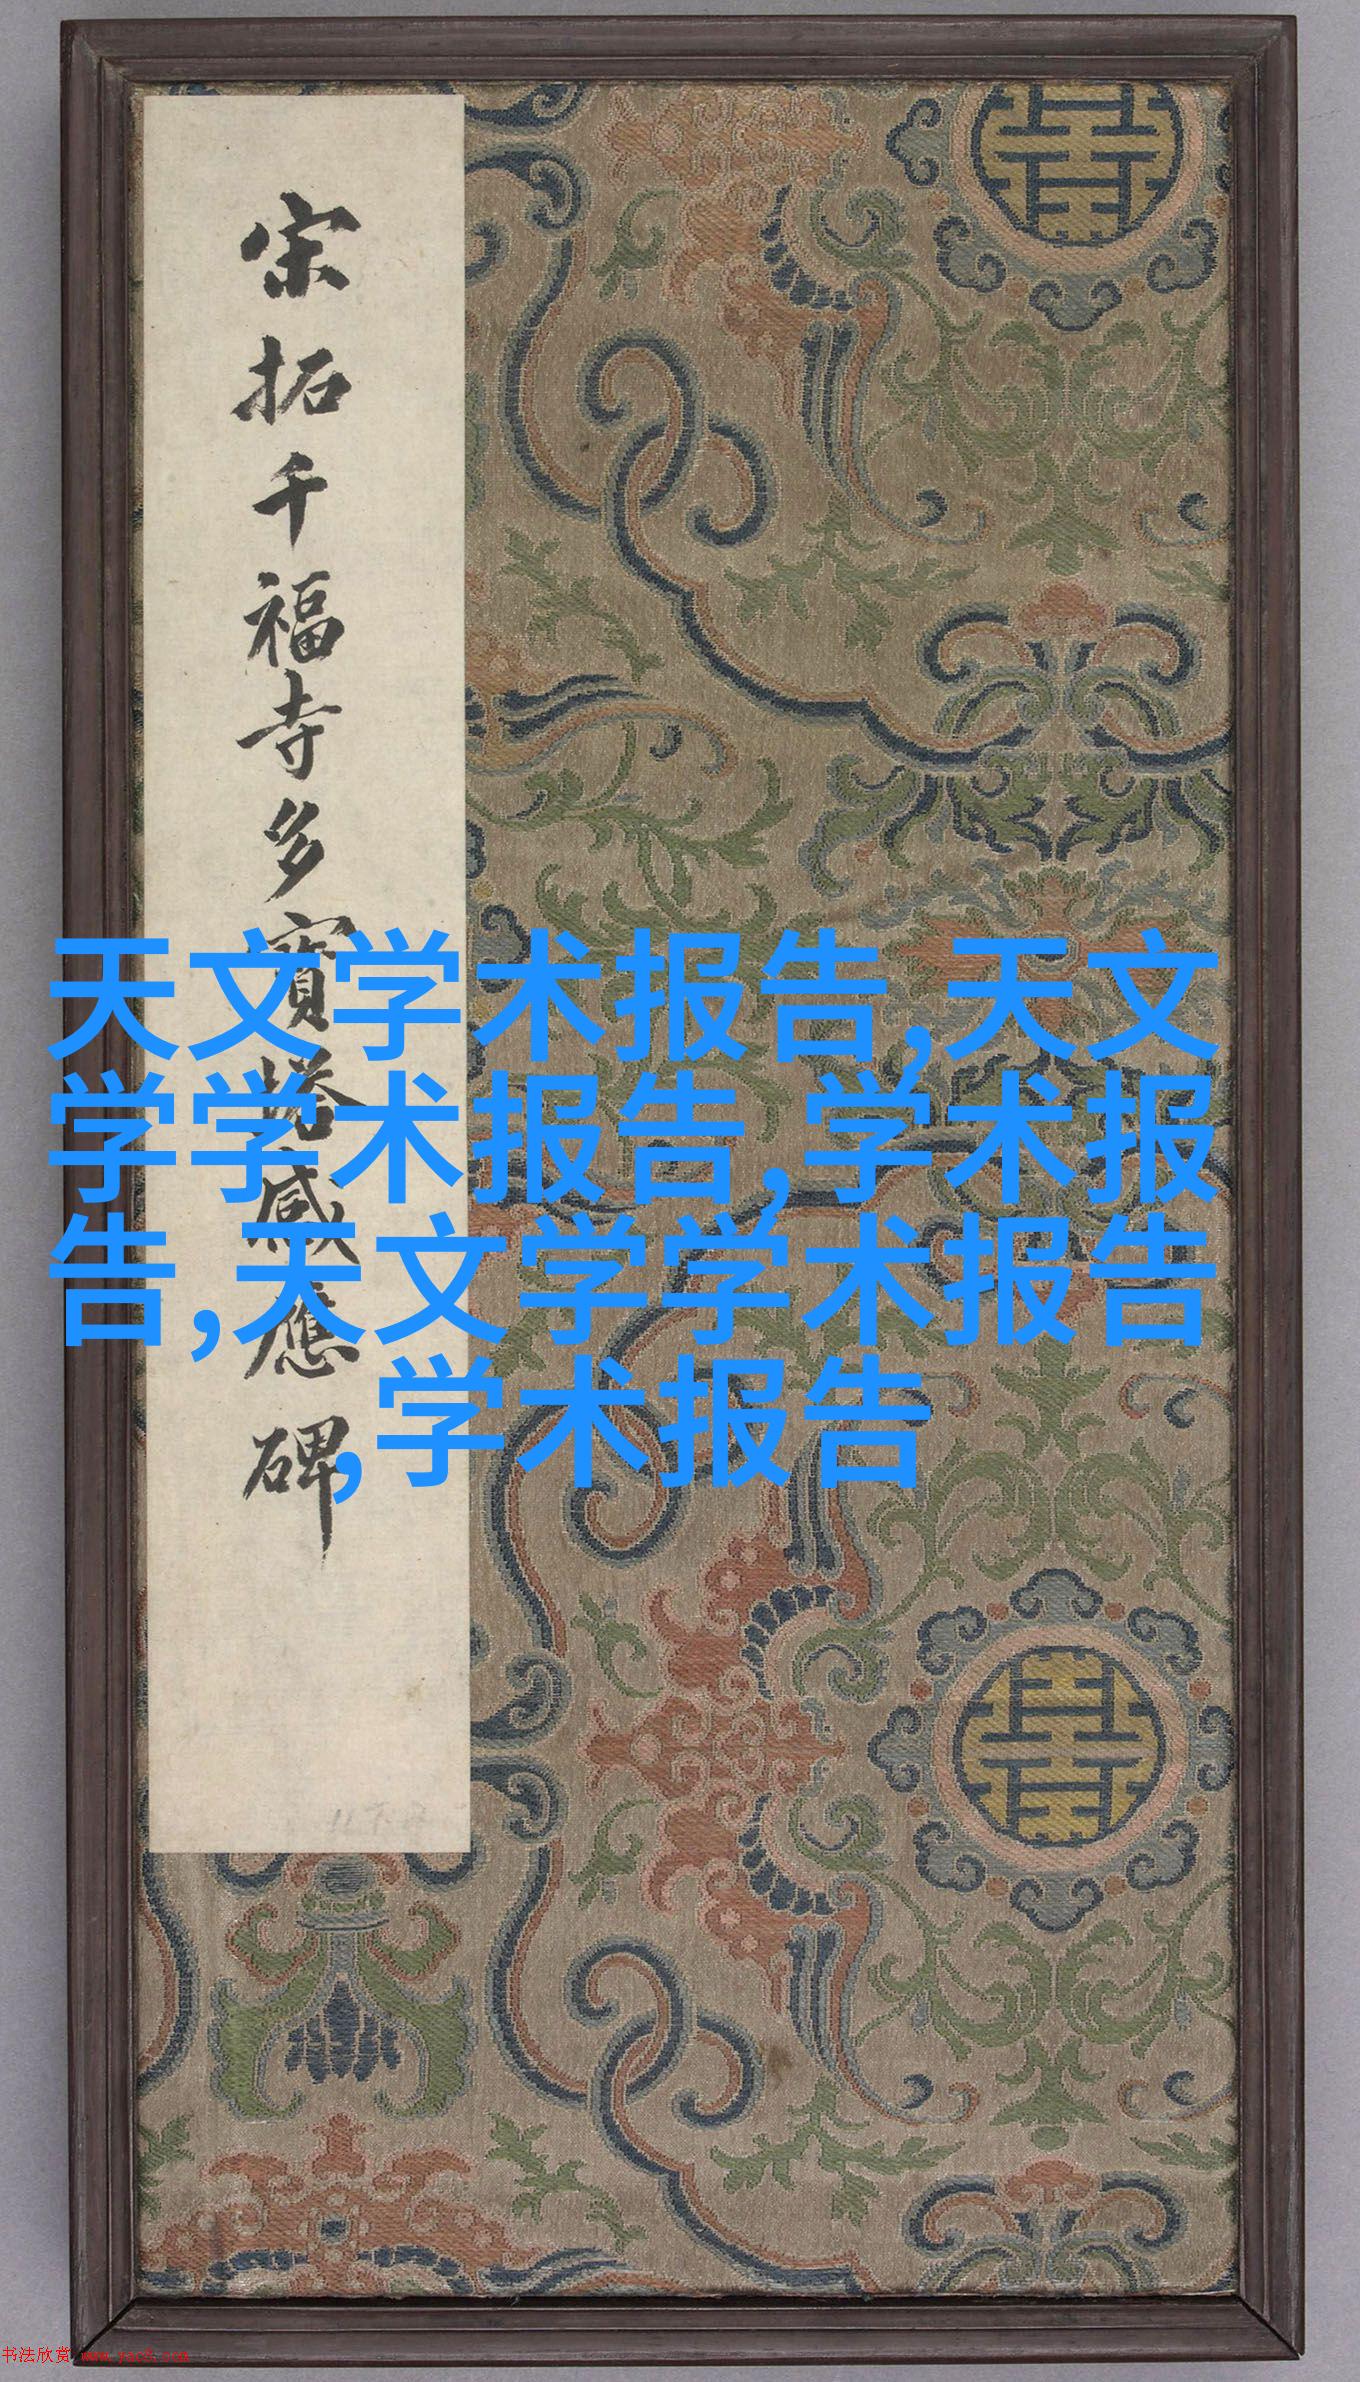 宋拓千福寺多寳塔感應碑
天文学术报告,天文
学学术报告,学术报
告,天文学学术报告
,学术报告
书法欣赏